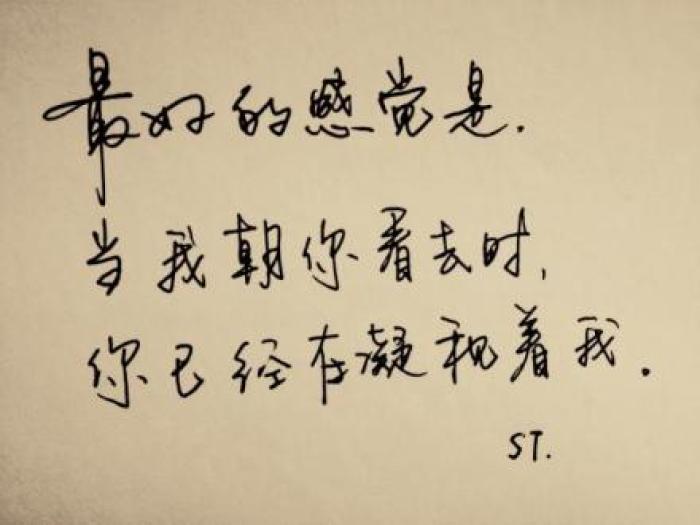 最好的感觉是.
当我朝你看去时,
你已经在凝视着我.
ST.